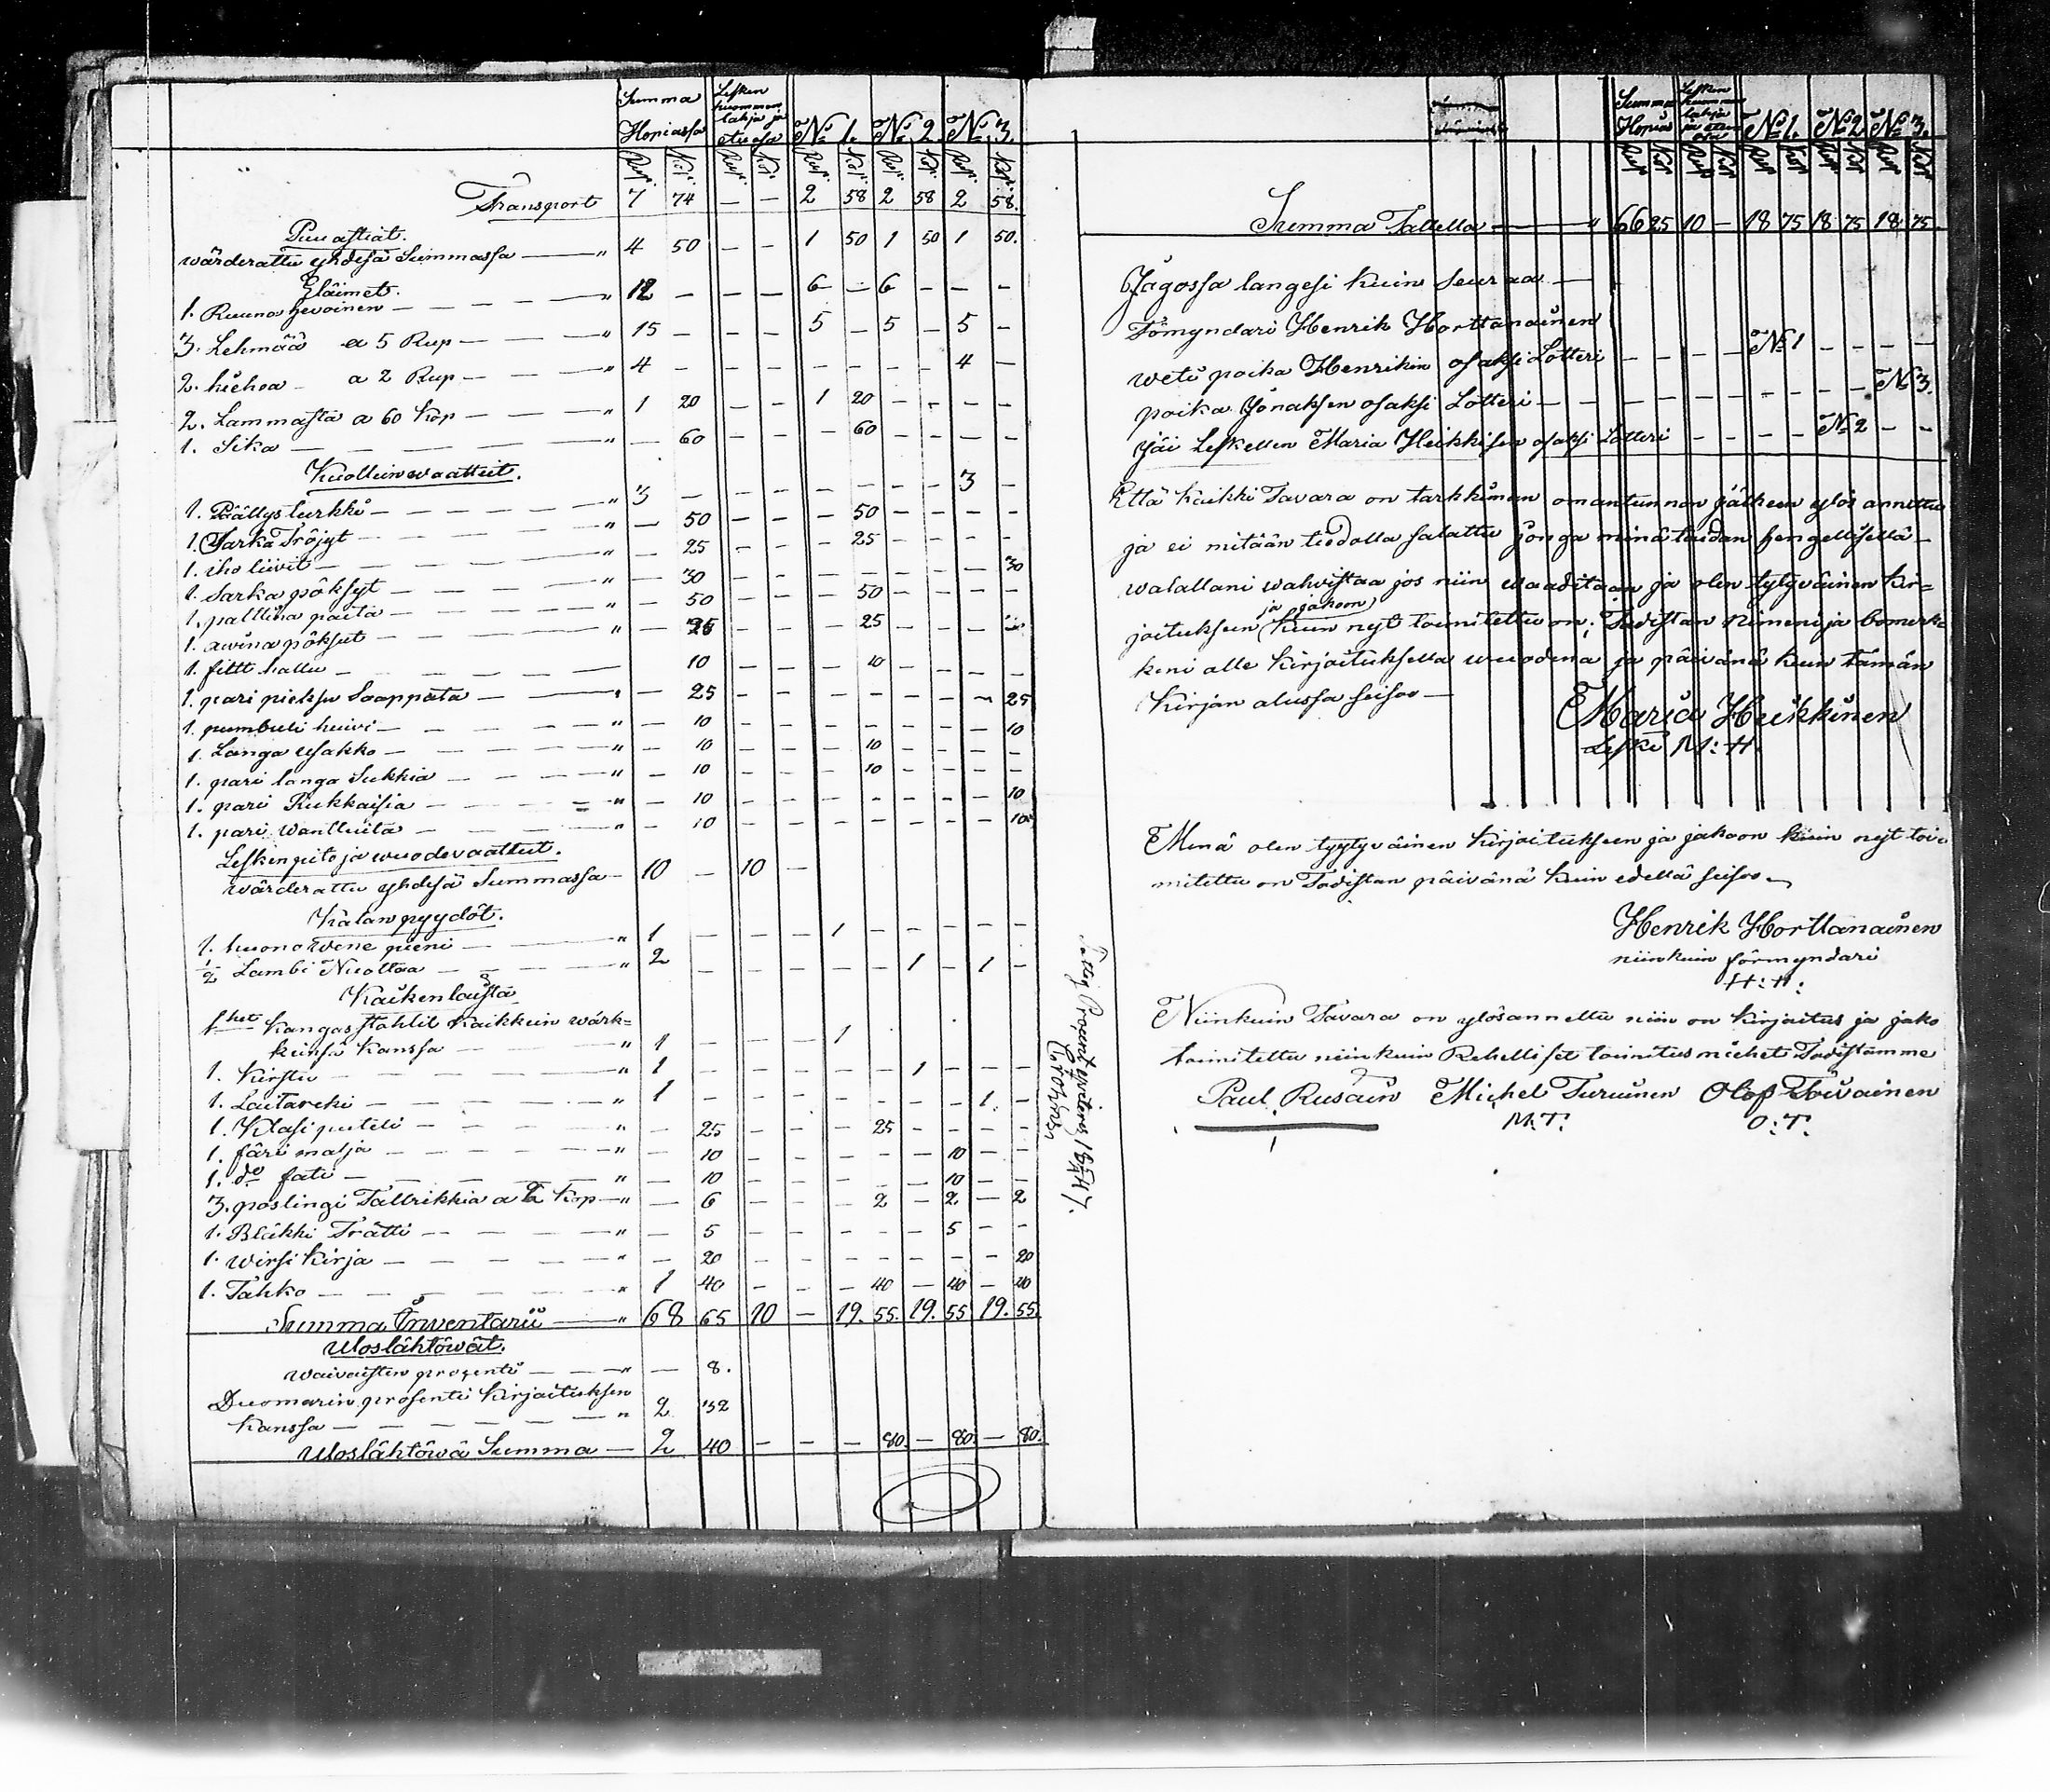 Summa Hopiassa | Lesken huomen lahja ja etu osa | No 1. | No 2 | No 3.
Rup. Kop. Rup. Kop. Rup. Kop. Rup. Kop. Rup. Kop.
Transport 7 74 — — 2 58 2 58 2 58.
Puuastiat.
wärderattu yhdesä Summassa — " 4 50 — — 1 50 1 50 1 50.
Eläimet.
1. Ruuna hevoinen — " 12 — — — 6 — 6 — — —
3. Lehmää a 5 Rup — " 15 — — — 5 — 5 — 5 —
2. hiehoa a 2 Rup — " 4 — — — — — — — 4 —
2. Lammasta a 60 Kop — " 1 20 — — 1 20 — — — —
1. Sika — " — 60 — — — 60 — — — —
Kuolleinwaatteit.
1. Päällysturkki — " 3 — — — — — — — 3 —
1. Sarka Tröjyt — " — 50 — — — 50 — — — —
1. iho liivit — " — 25 — — — 25 — — — —
1. Sarka pöksyt — " — 30 — — — — — — — 30
1. palttina paita — " — 50 — — — 50 — — — —
1. awina pöksut — " — 25 — — — 25 — — —
1. filtt hattu — 10 — — — 10 — — — —
1. pari pieksu Saappaita — " — 25 — — — — — — — 25
1. pumbuli huivi — " — 10 — — — — — — — 10
1. Langa Wakko — " — 10 — — — 10 — — — —
1. pari langa Sukkia — " — 10 — — — 10 — — — —
1. pari Rukkaisia — " — 10 — — — — — — — 10
1. pari Wanttuita — " — 10 — — — — — — — 10
Leskenpito ja wuodewaatteet.
wärderattu yhdesä Summassa — 10 — 10 —
Kalan pyydöt.
1. huono Wene pieni — " 1 — — — 1 — — — — —
1/2 Lambi Nuottaa — " 2 — — — — — 1 — 1 —
Kaikenlaista
1het Kangasstahlit Kaikkein wärk=
keinsä Kanssa — " 1 — — — 1
1. Kirstu — " 1 — — — — — 1 — — —
1. Laitareki — " 1 — — — — — — — 1. —
1. Klasi puteli — " — 25 — — — 25 — — — —
1. färi malja — " — 10 — — — — — 10 — —
1. do fati — " — 10 — — — — — 10 — —
3. poslingi Tallrikkia a 2 Kop — " — 6 — — — 2 — 2 — 2
1. Bläkki Trätti — " — 5 — — — — — 5 — —
1. Wirsi Kirja — " — 20 — — — — — — — 20
1. Tahko — " 1 40 — — — 40 — 40 — 40
Summa Inventarii — " 68 65 10 — 19. 55. 19. 55 19. 55.
Uloslähtöwät.
waivaisten prosenti — " — 8.
Duomarin prosenti Kirjoituksen
Kanssa — " 2 32
Uloslähtöwä Summa — 2 40 — — — 80. — 80. — 80.
Fattig Procent qviteras
Summa Hopia | Lesken huomen lahja ja etu osa | No 1. | No 2 | No 3.
Rup Kop Rup Kop Rup Kop Rup Kop Rup Kop
Summa Tallella — " 66 25 10 — 18 75 18 75 18 75.
Jagossa langesi kuin seuraa —
Förmyndari Henrik Horttanainen
weti poika Henrikin osaksi Lotteri — No 1 —
poika Jonaksen osaksi Lotteri — No 3.
jäi Leskellen Maria Heikkisen osaksi Lotteri — No 2 — —
Että Kaikki Tavara on tarkkiman omantunnon jälkeen ylös annettu
ja ei mitään tiedolla salattu jonga minä taidan hengellisellä
walallani wahvistaa jos niin waaditaan ja olen tytyväinen Kir=
joitukseen (ja jakoon) Kuin nyt toimitettu on; Todistan nimeni ja bomerk
keni alle Kirjoituksella wuodena ja päivänä Kuin tämän
Kirjan alussa seisoo —
Maria Heikkinen
Leski M: H.
Minä olen tyytyväinen Kirjoitukseen ja jakoon Kuin nyt toi
mitettu on Todistan päivänä Kuin edellä seisoo —
Henrik Horttanainen
niinkuin förmyndari
H: H:
Niinkuin Tavara on ylösannettu niin on Kirjoitus ja jako
toimitettu niinkuin Rehelliset toimitus miehet Todistamme
Paul Rusain Michel Turuinen Olof Toivainen
M: T: O: T: